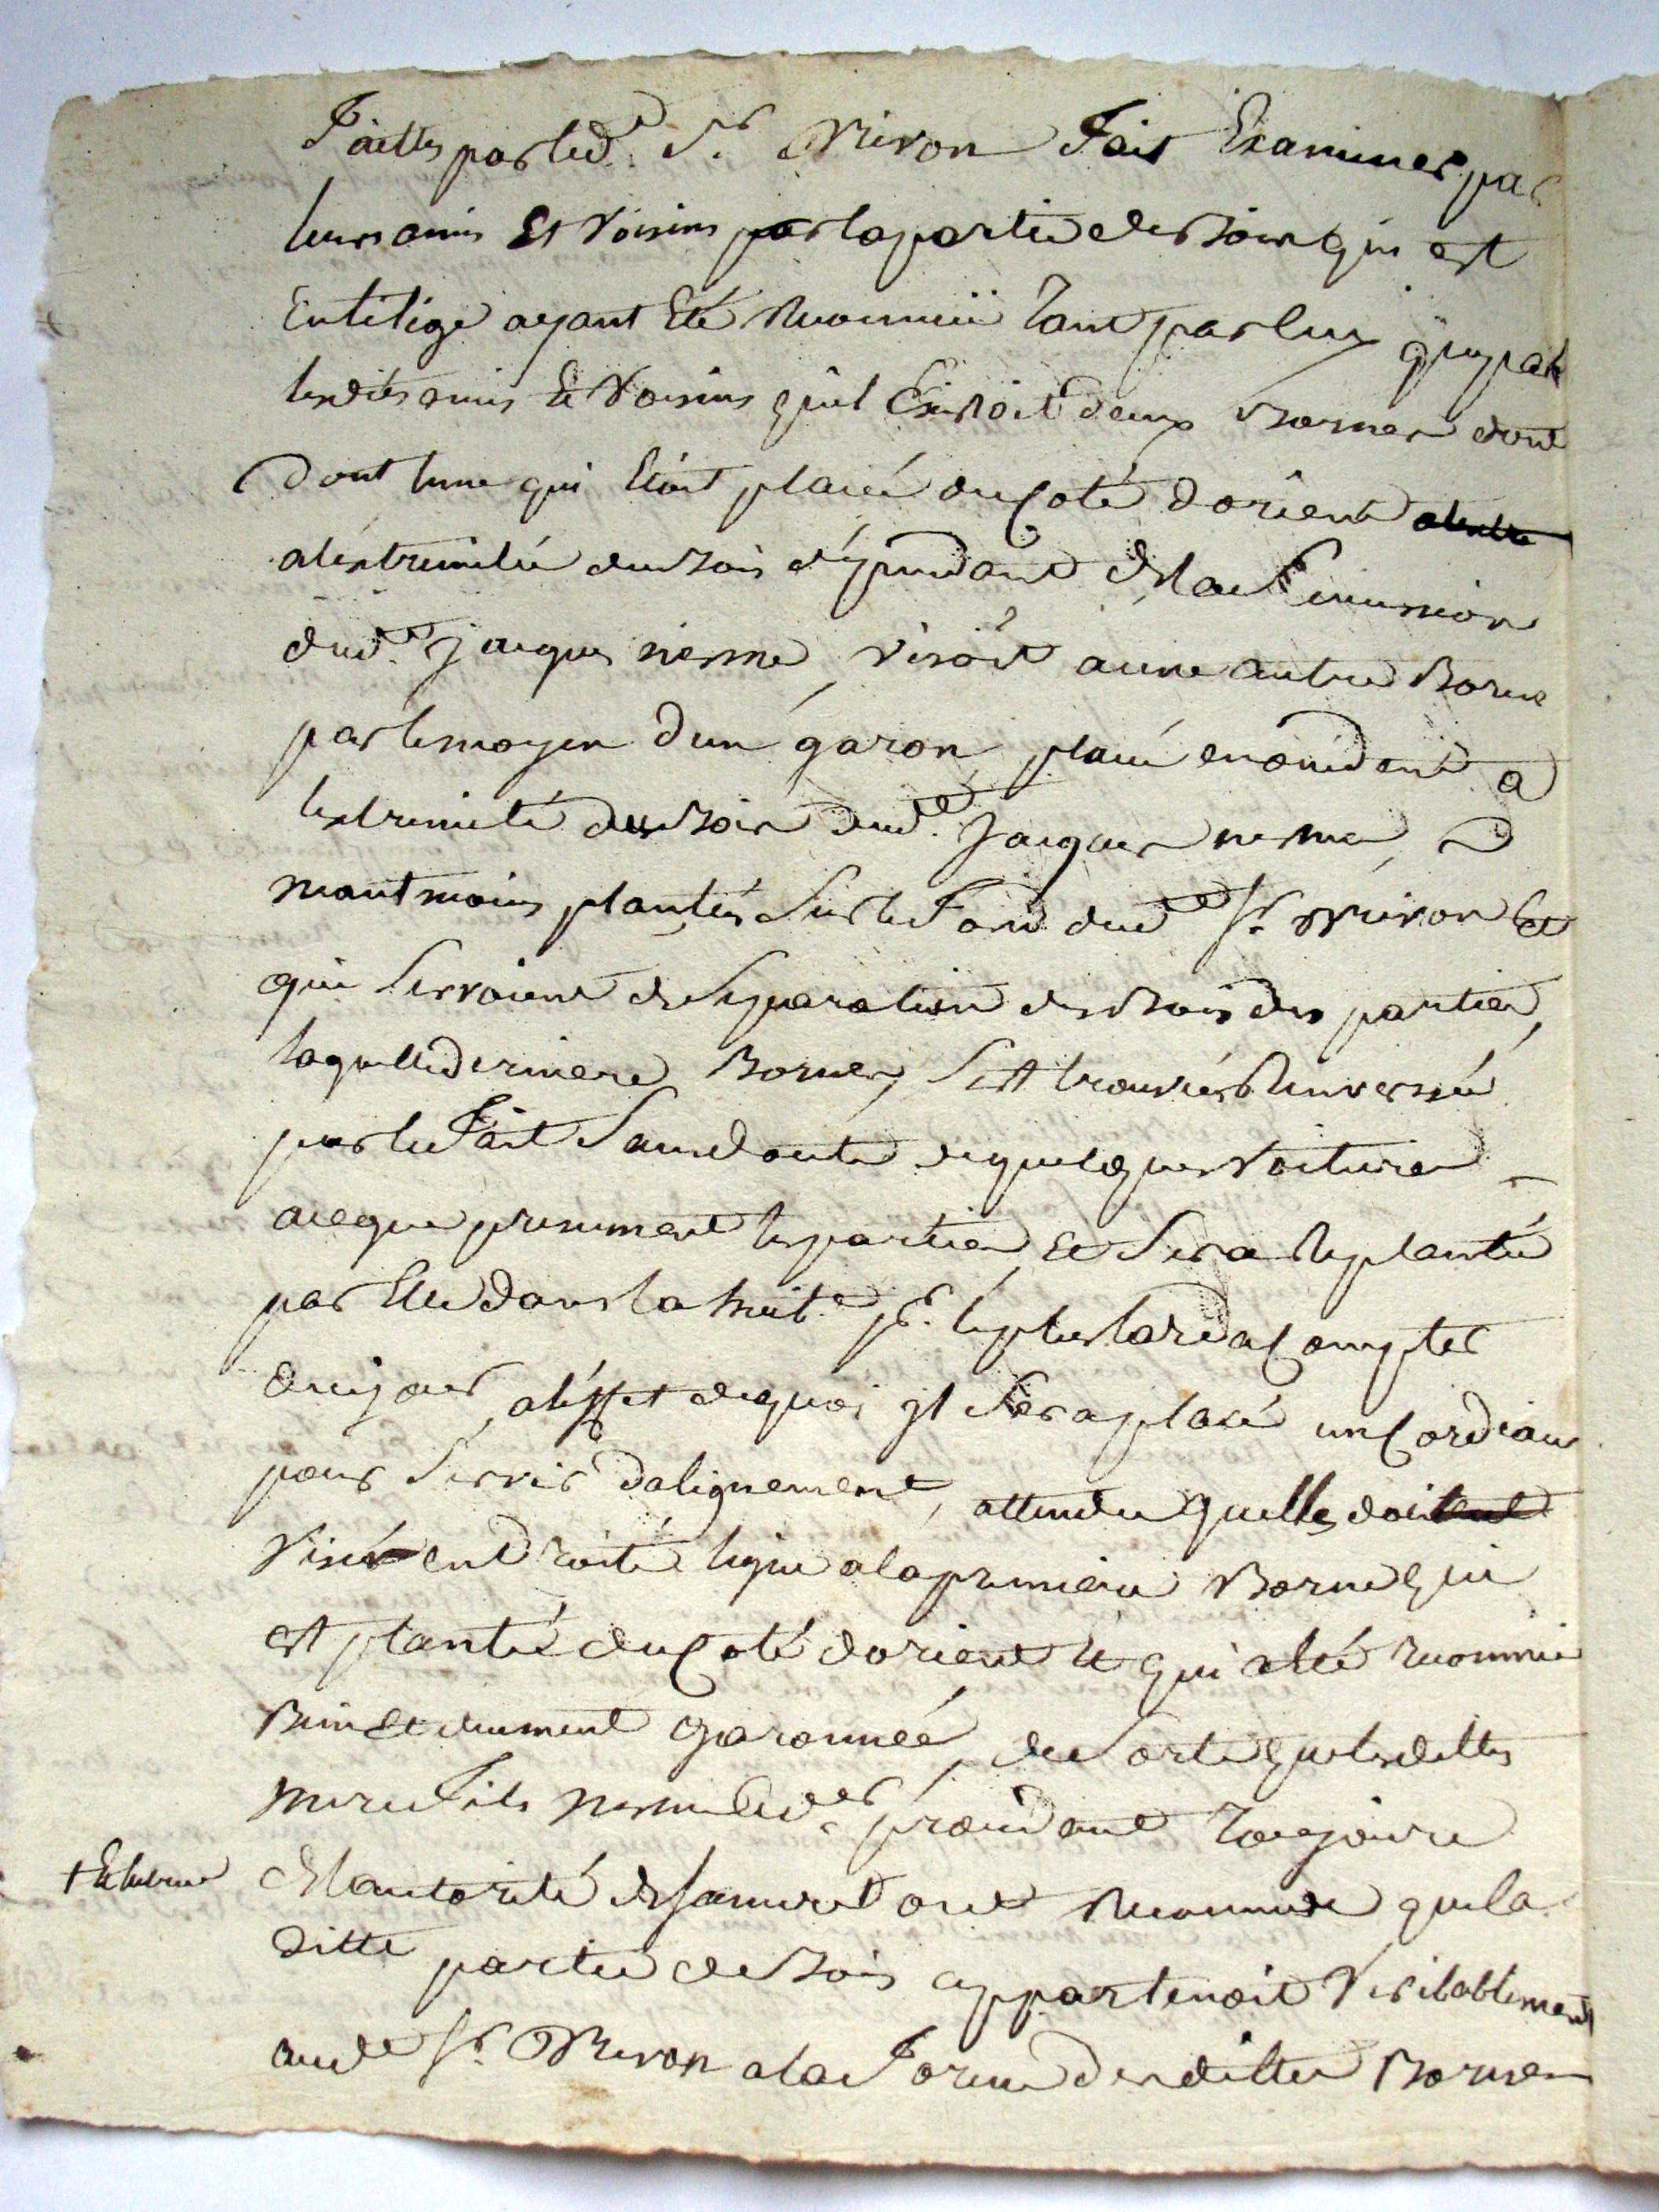 Faittes par led.t S.r Miron Fait Examiner par
leurs amis Et Voisins par la partie de Bois qui est
En litige ayant Eté Reconnuë Tant par Eux que par
lesdits amis Et Voisins quil Existoit deux Bornes dont
Dont lune qui Etoit placée du Coté dorient
alextremitée du Bois dépendant de la
dud.t Jacques nesme, visoit a une autre Borne
par le moyen dun garon placé en occident a
lextremité du Bois dud.t Jacques nesme,
neantmoins plantés Sur le Fond dud.t S.r Miron Et
qui Servoient de Separation des Bois des parties,
laquelle derniere Borne, S'est trouvée Renversée
par le Fait Sans doute de quelques Voitures
ace que presument les parties, Et Sera Replantée
par Elles dans la huit.e pr. le plus tard a Compter
de ce jour, aleffet de quoi jl Sera placé un Cordeau
pour Servir dalignement, attendu quelle doit
Viser en droite ligne a la premiere Borne qui
est plantée du Coté dorient Et qui a Eté reconnue
Bien Et duement garonnée, de Sorte que lesdittes
mere Fils nesme Led.t procedant Toujours
De lautorité de ont Reconnu que la
ditte partie de Bois appartenoit Veritablement
aud.t S.r Miron a la Forme desdittes Bornes